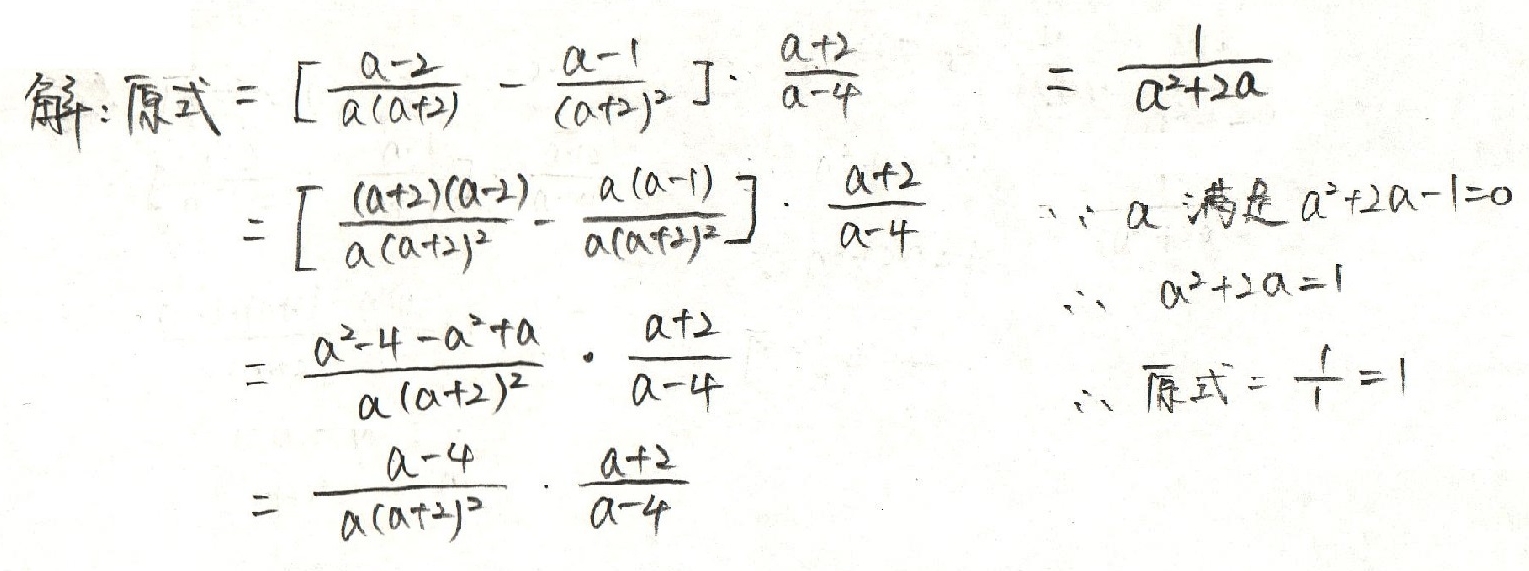 解:原式 = [ (a-2)/(a(a+2)) - (a-1)/((a+2)²) ]· (a+2)/(a-4)
= [ ((a+2)(a-2))/(a(a+2)²) - (a(a-1))/(a(a+2)²) ] · (a+2)/(a-4)
= (a²-4-a²+a)/(a(a+2)²) · (a+2)/(a-4)
= (a-4)/(a(a+2)²) · (a+2)/(a-4)
= 1/(a²+2a)
∵ a 满足 a²+2a-1=0
∴ a²+2a=1
∴ 原式 = 1/1 = 1